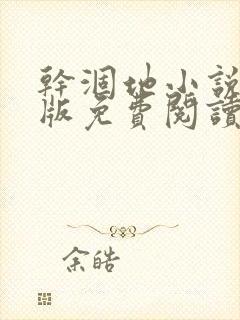 幹涸地小說
版免費閱讀
余皓